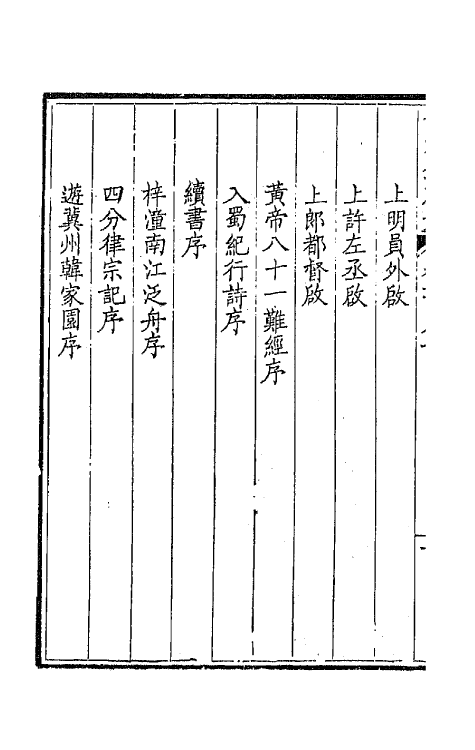 上明員外啟
上許左丞啟
上郎都督啟
黃帝八十一難經序
入蜀紀行詩序
續書序
梓潼南江泛舟序
四分律宗記序
遊冀州韓家園序